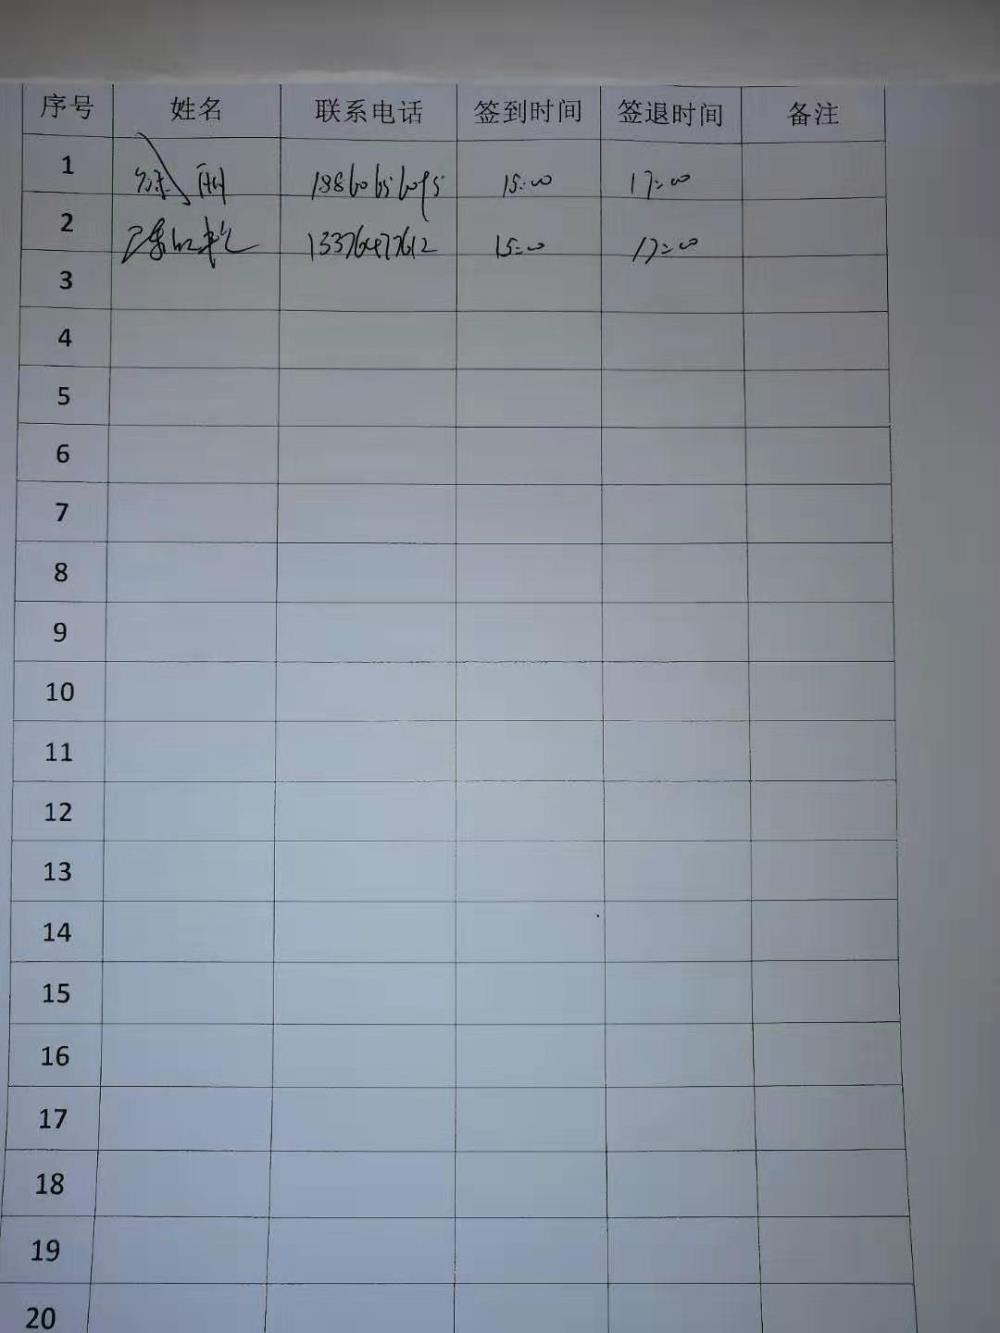 序号 姓名 联系电话 签到时间 签退时间 备注
1 18860656095 15:00 17:00
2 13376477612 15:00 17:00
3
4
5
6
7
8
9
10
11
12
13
14
15
16
17
18
19
20